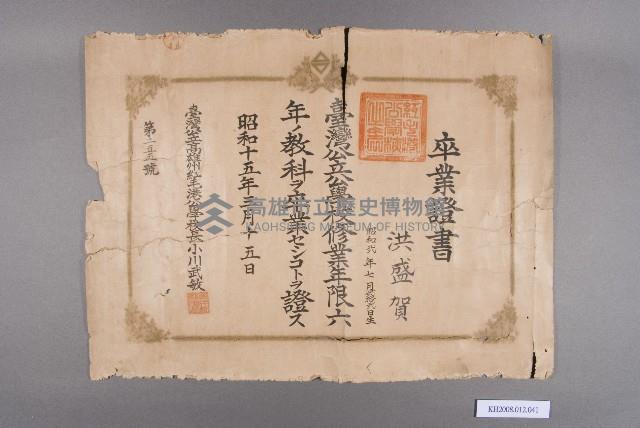 卒業證書
洪盛賀
昭和貳年七月拾六日生
臺灣公立公學校修業年限六
年ノ教科ヲ卒業セシコトヲ證ス
昭和十五年三月十五日
臺灣公立高雄州紅毛港公學校長小川武敏
第二五號
高雄市立歷史博物館
KAOHSIUNG MUSEUM OF HISTORY
KH2008.012.041